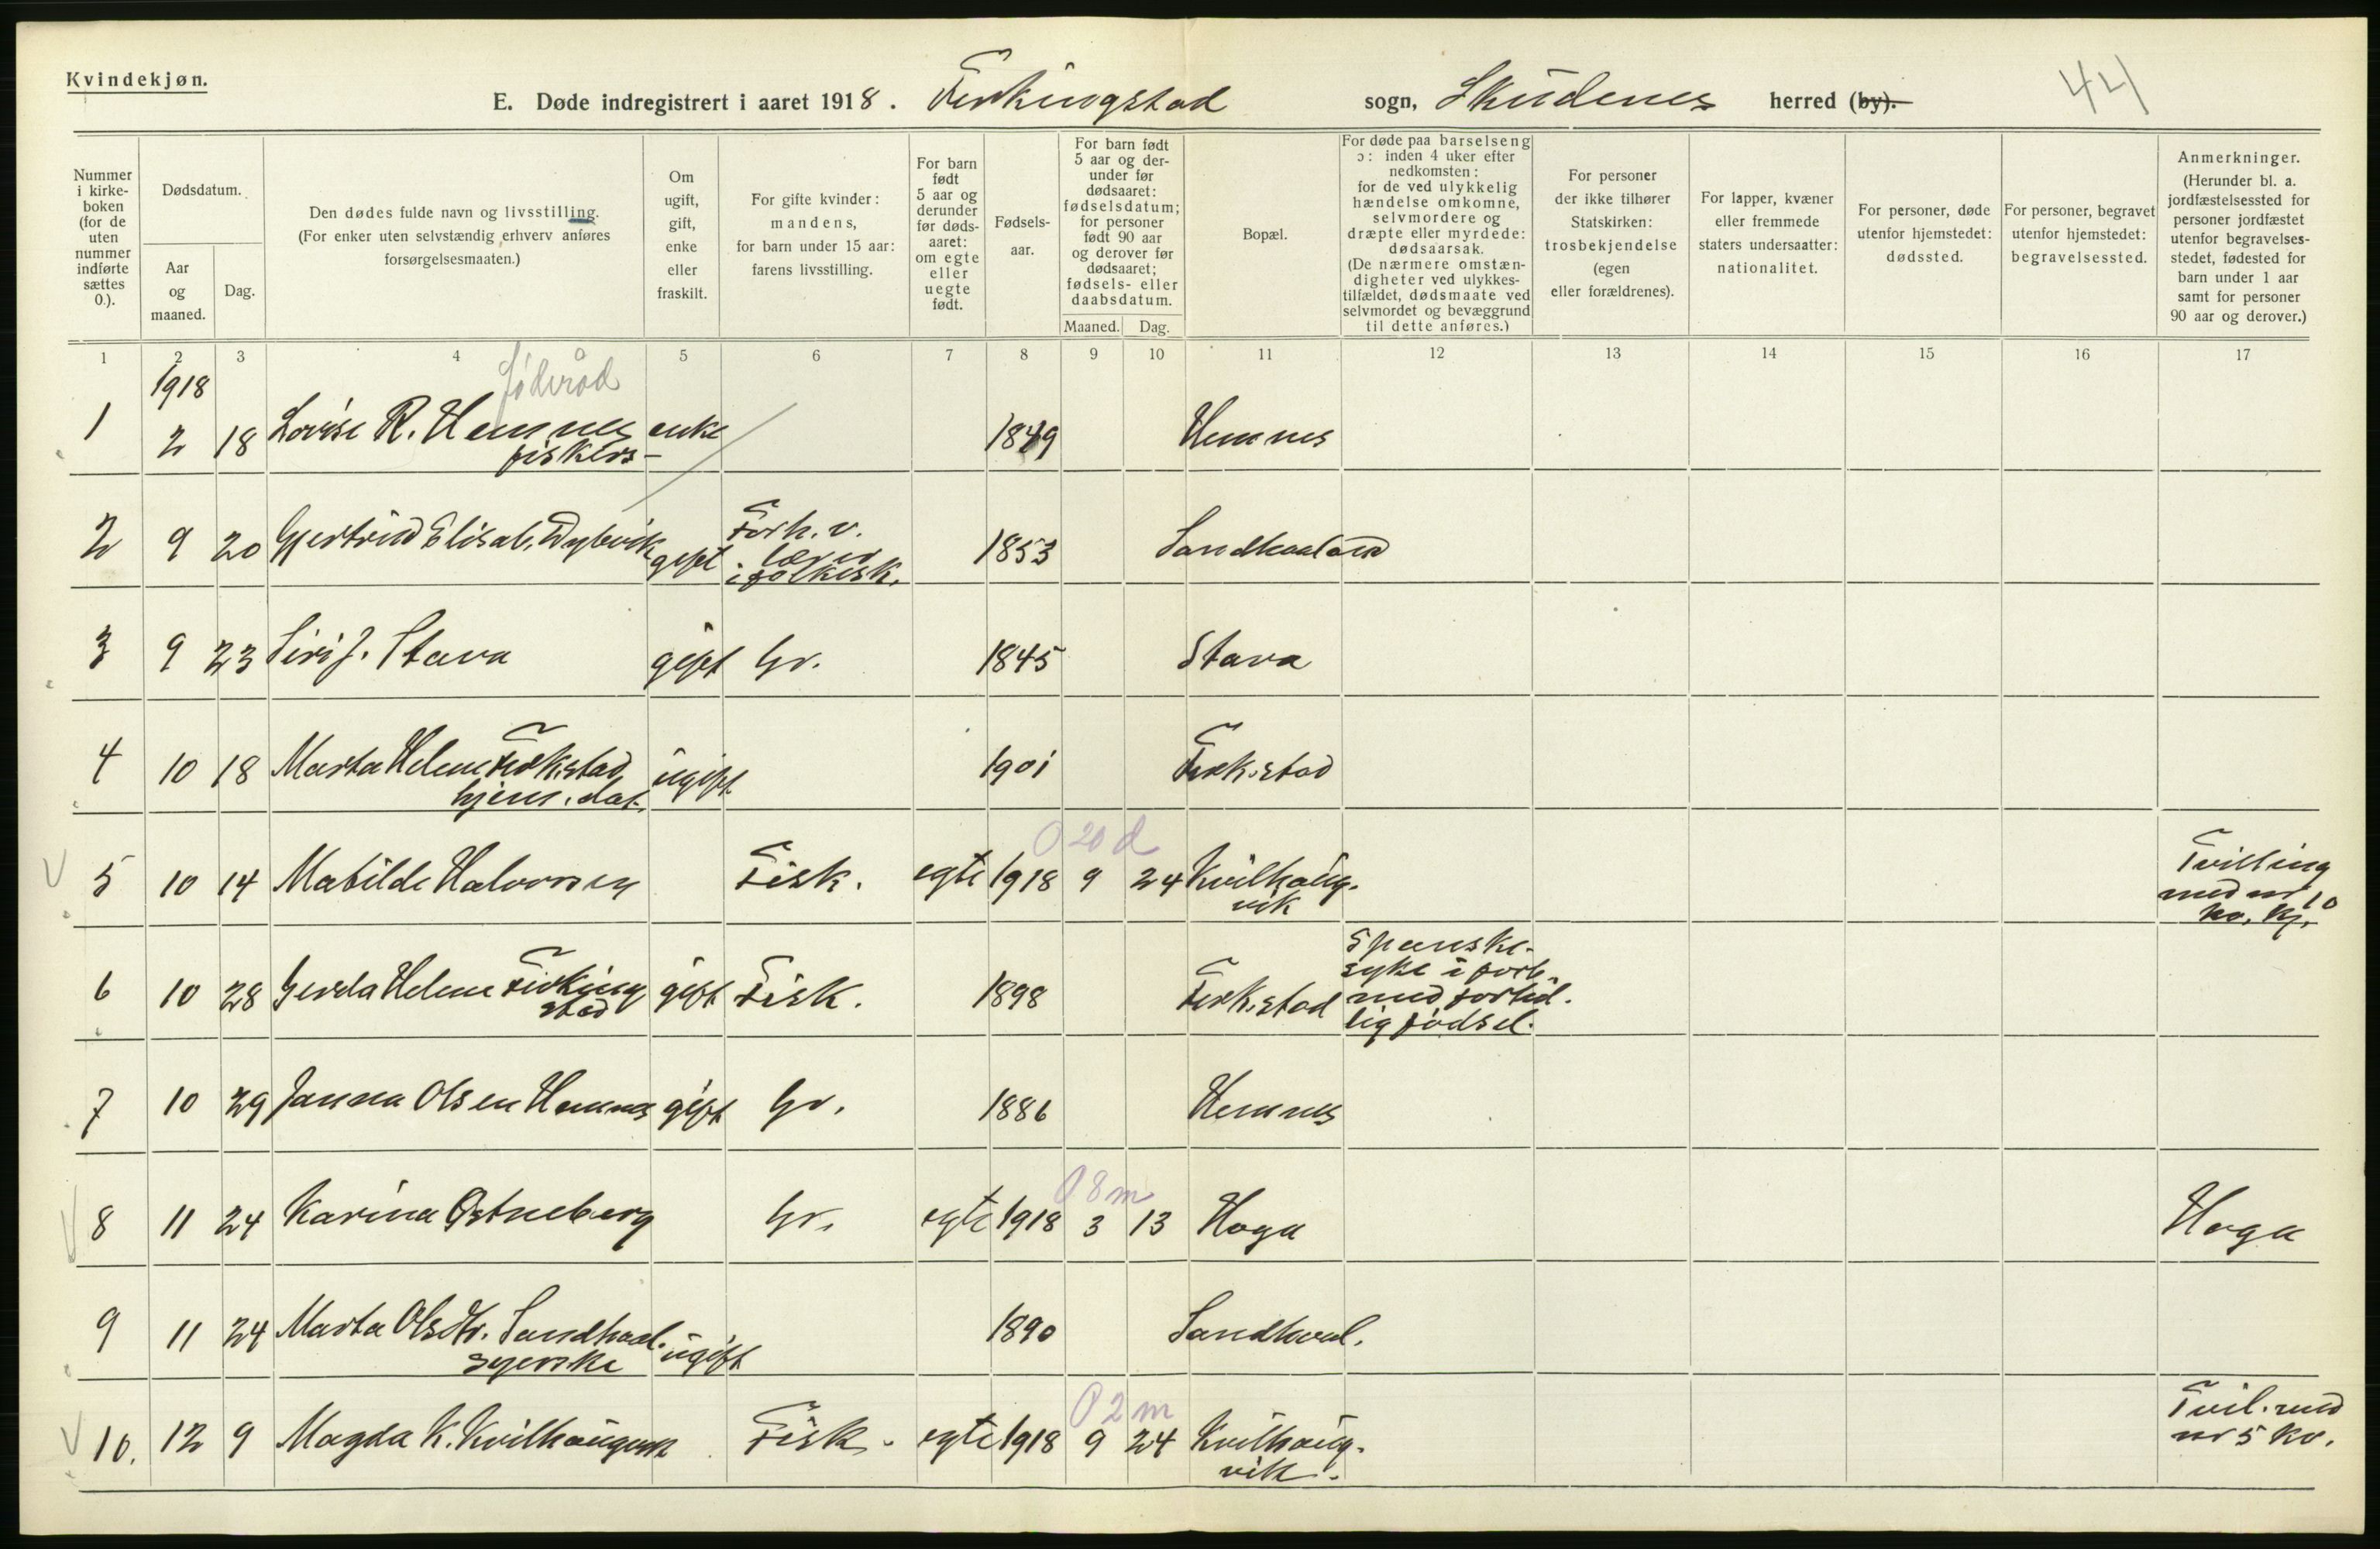 Kvindekjøn.
E. Døde indregistrert i aaret 1918. Ferkingstad sogn, Skudenes herred (by).
44
Nummer i kirke- boken (for de uten nummer indførte sættes 0.).
Dødsdatum.
Aar og maaned.
Dag.
Den dødes fulde navn og livsstilling.
(For enker uten selvstændig erhverv anføres forsørgelsesmaaten.)
Om ugift, gift, enke eller fraskilt.
For gifte kvinder: mandens, for barn under 15 aar: farens livsstilling.
For barn født 5 aar og derunder før døds- aaret: om egte eller uegte født.
Fødsels- aar.
For barn født 5 aar og der- under før dødsaaret: fødselsdatum; for personer født 90 aar og derover før dødsaaret; fødsels- eller daabsdatum.
Maaned. Dag.
Bopæl.
For døde paa barselseng ɔ: inden 4 uker efter nedkomsten: for de ved ulykkelig hændelse omkomne, selvmordere og dræpte eller myrdede: dødsaarsak. (De nærmere omstæn- digheter ved ulykkes- tilfældet, dødsmaate ved selvmordet og bevæggrund til dette anføres.)
For personer der ikke tilhører Statskirken: trosbekjendelse (egen eller forældrenes).
For lapper, kvæner eller fremmede staters undersaatter: nationalitet.
For personer, døde utenfor hjemstedet: dødssted.
For personer, begravet utenfor hjemstedet: begravelsessted.
Anmerkninger. (Herunder bl. a. jordfæstelsessted for personer jordfæstet utenfor begravelses- stedet, fødested for barn under 1 aar samt for personer 90 aar og derover.)
1 2 3 4 5 6 7 8 9 10 11 12 13 14 15 16 17
1918
føderåd
1 2 18 Lovise R. Hemnes enke 1849 Hemnes
fiskers-
2 9 20 Gjertrud Elisab. Dybvik gift Forh. v. lærer i folkesk. 1853 Sandhaaland
3 9 23 Siri J. Stava gift Gr. 1845 Stava
4 10 18 Marta Helene Ferk.stad ugift 1901 Ferk.stad
hjem. dat.
O 20 d
5 10 14 Matilde Halvorsen Fisk. egte 1918 9 24 Kvilhaug- vik Tvilling med nr 10 kv. kj.
6 10 28 Gerda Helene Ferking stad gift Fisk. 1898 Ferk.stad Spanske- syke i forb. med fortid. lig fødsel.
7 10 29 Janna Olsen Hemnes gift Gr. 1886 Hemnes
O 8 m
8 11 24 Karina Østneberg Gr. egte 1918 3 13 Haga Haga
9 11 24 Marta Olsdtr. Sandhaal. ugift 1890 Sandhaal.
syerske
O 2 m
10. 12 9 Magda K. Kvilhaugsvik Fisk. egte 1918 9 24 Kvilhaug- vik. Tvil. med nr 5 kv.